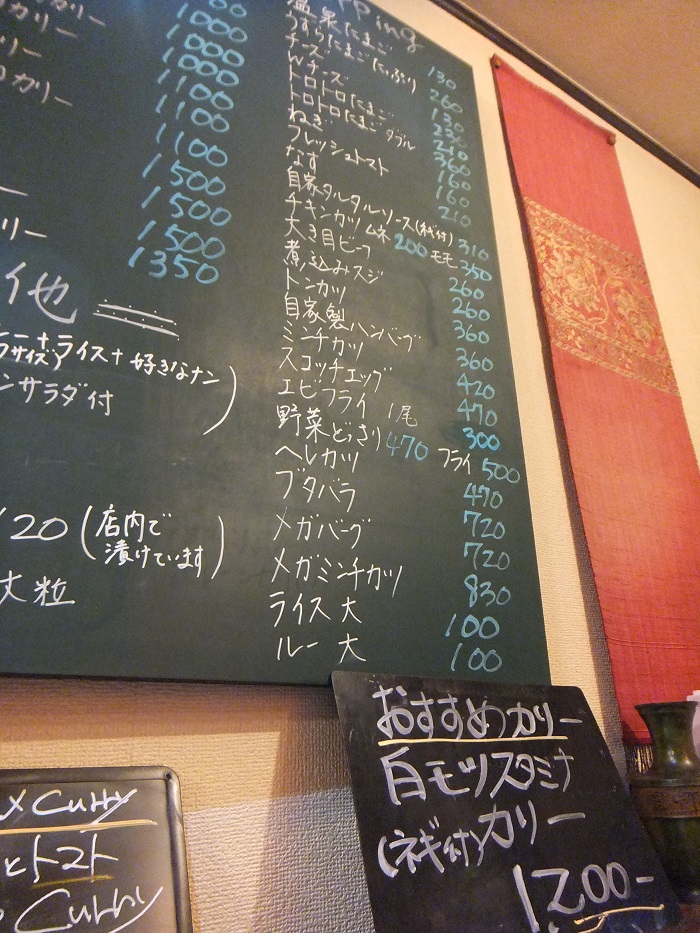 カリー
1000
1000
リー
1000
カリー
1100
1100
1100
1500
1500
リー
1500
1350
他
ライス+好きなナン
サラダ付
120(店内で
漬けています)
大粒
pping
温泉たまご 130
うずらたまごたっぷり 260
チーズ 130
Wチーズ 230
トロトロたまご 210
トロトロたまごダブル 360
ねぎ 160
フレッシュトマト 160
なす 210
自家タルタルソース(ネギ付) 310
チキンカツ ムネ 200 モモ 350
大き目ビーフ 260
煮込みスジ 260
トンカツ 360
自家製ハンバーグ 360
ミンチカツ 420
スコッチエッグ 470
エビフライ 1尾 300
野菜どっさり 470 フライ 500
ヘレカツ 470
ブタバラ 720
メガバーグ 720
メガミンチカツ 830
ライス 大 100
ルー 大 100
おすすめカリー
白モツスタミナ
(ネギ付)カリー
1200-
Curry
とトマト
Curry